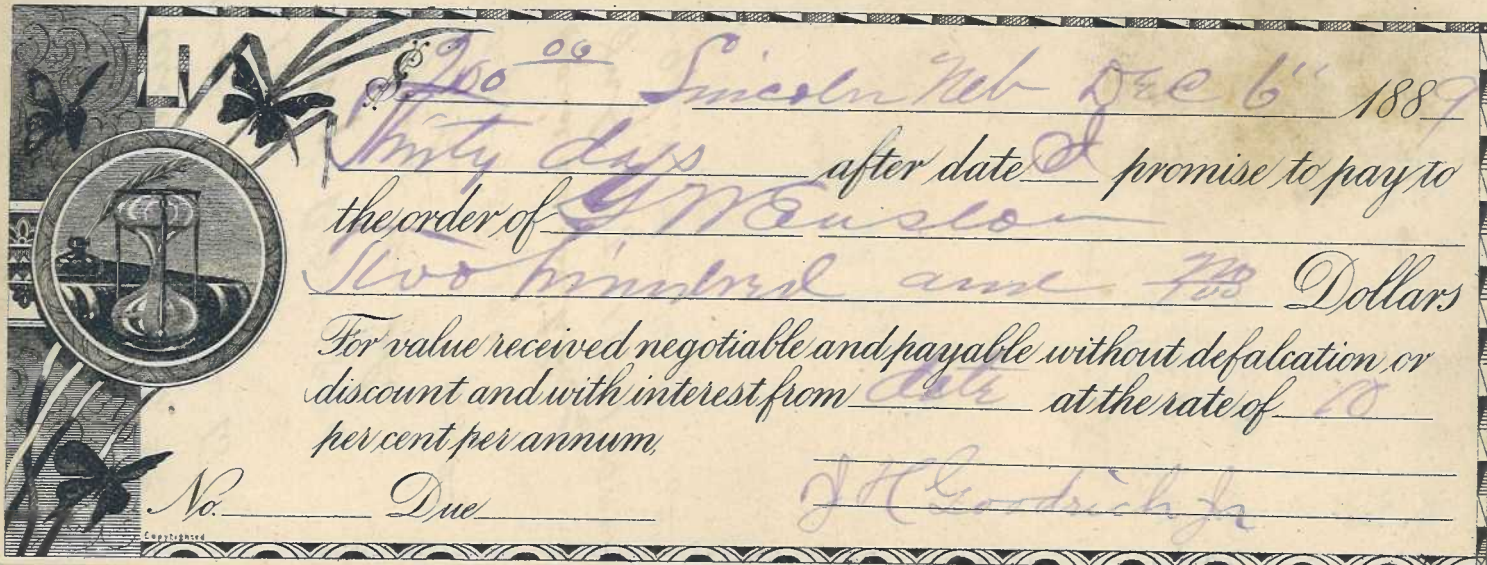 $200 00 Lincoln Neb Dec 6" 1889
Thirty days after date I promise to pay to
the order of
Two hundred and no/100 Dollars
For value received negotiable and payable without defalcation or
discount and with interest from date at the rate of 10
per cent per annum,
No. Due J H Goodrich Jr
Copyrighted